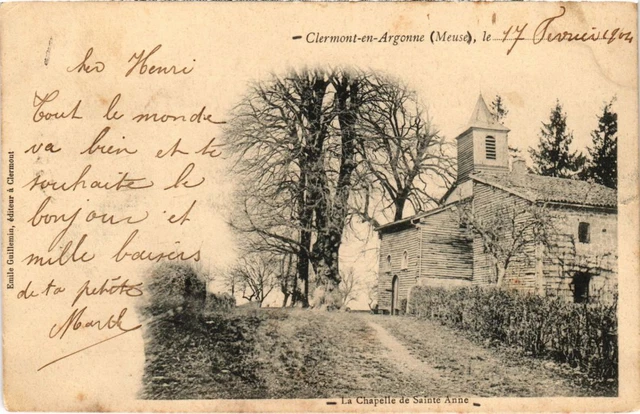 Clermont-en-Argonne (Meuse), le 17 Fevrier 1904
cher Henri
Tout le monde
va bien et te
souhaite le
bonjour et
mille baisers
de ta petite
Marthe
Emile Guillemin, éditeur à Clermont
La Chapelle de Sainte Anne